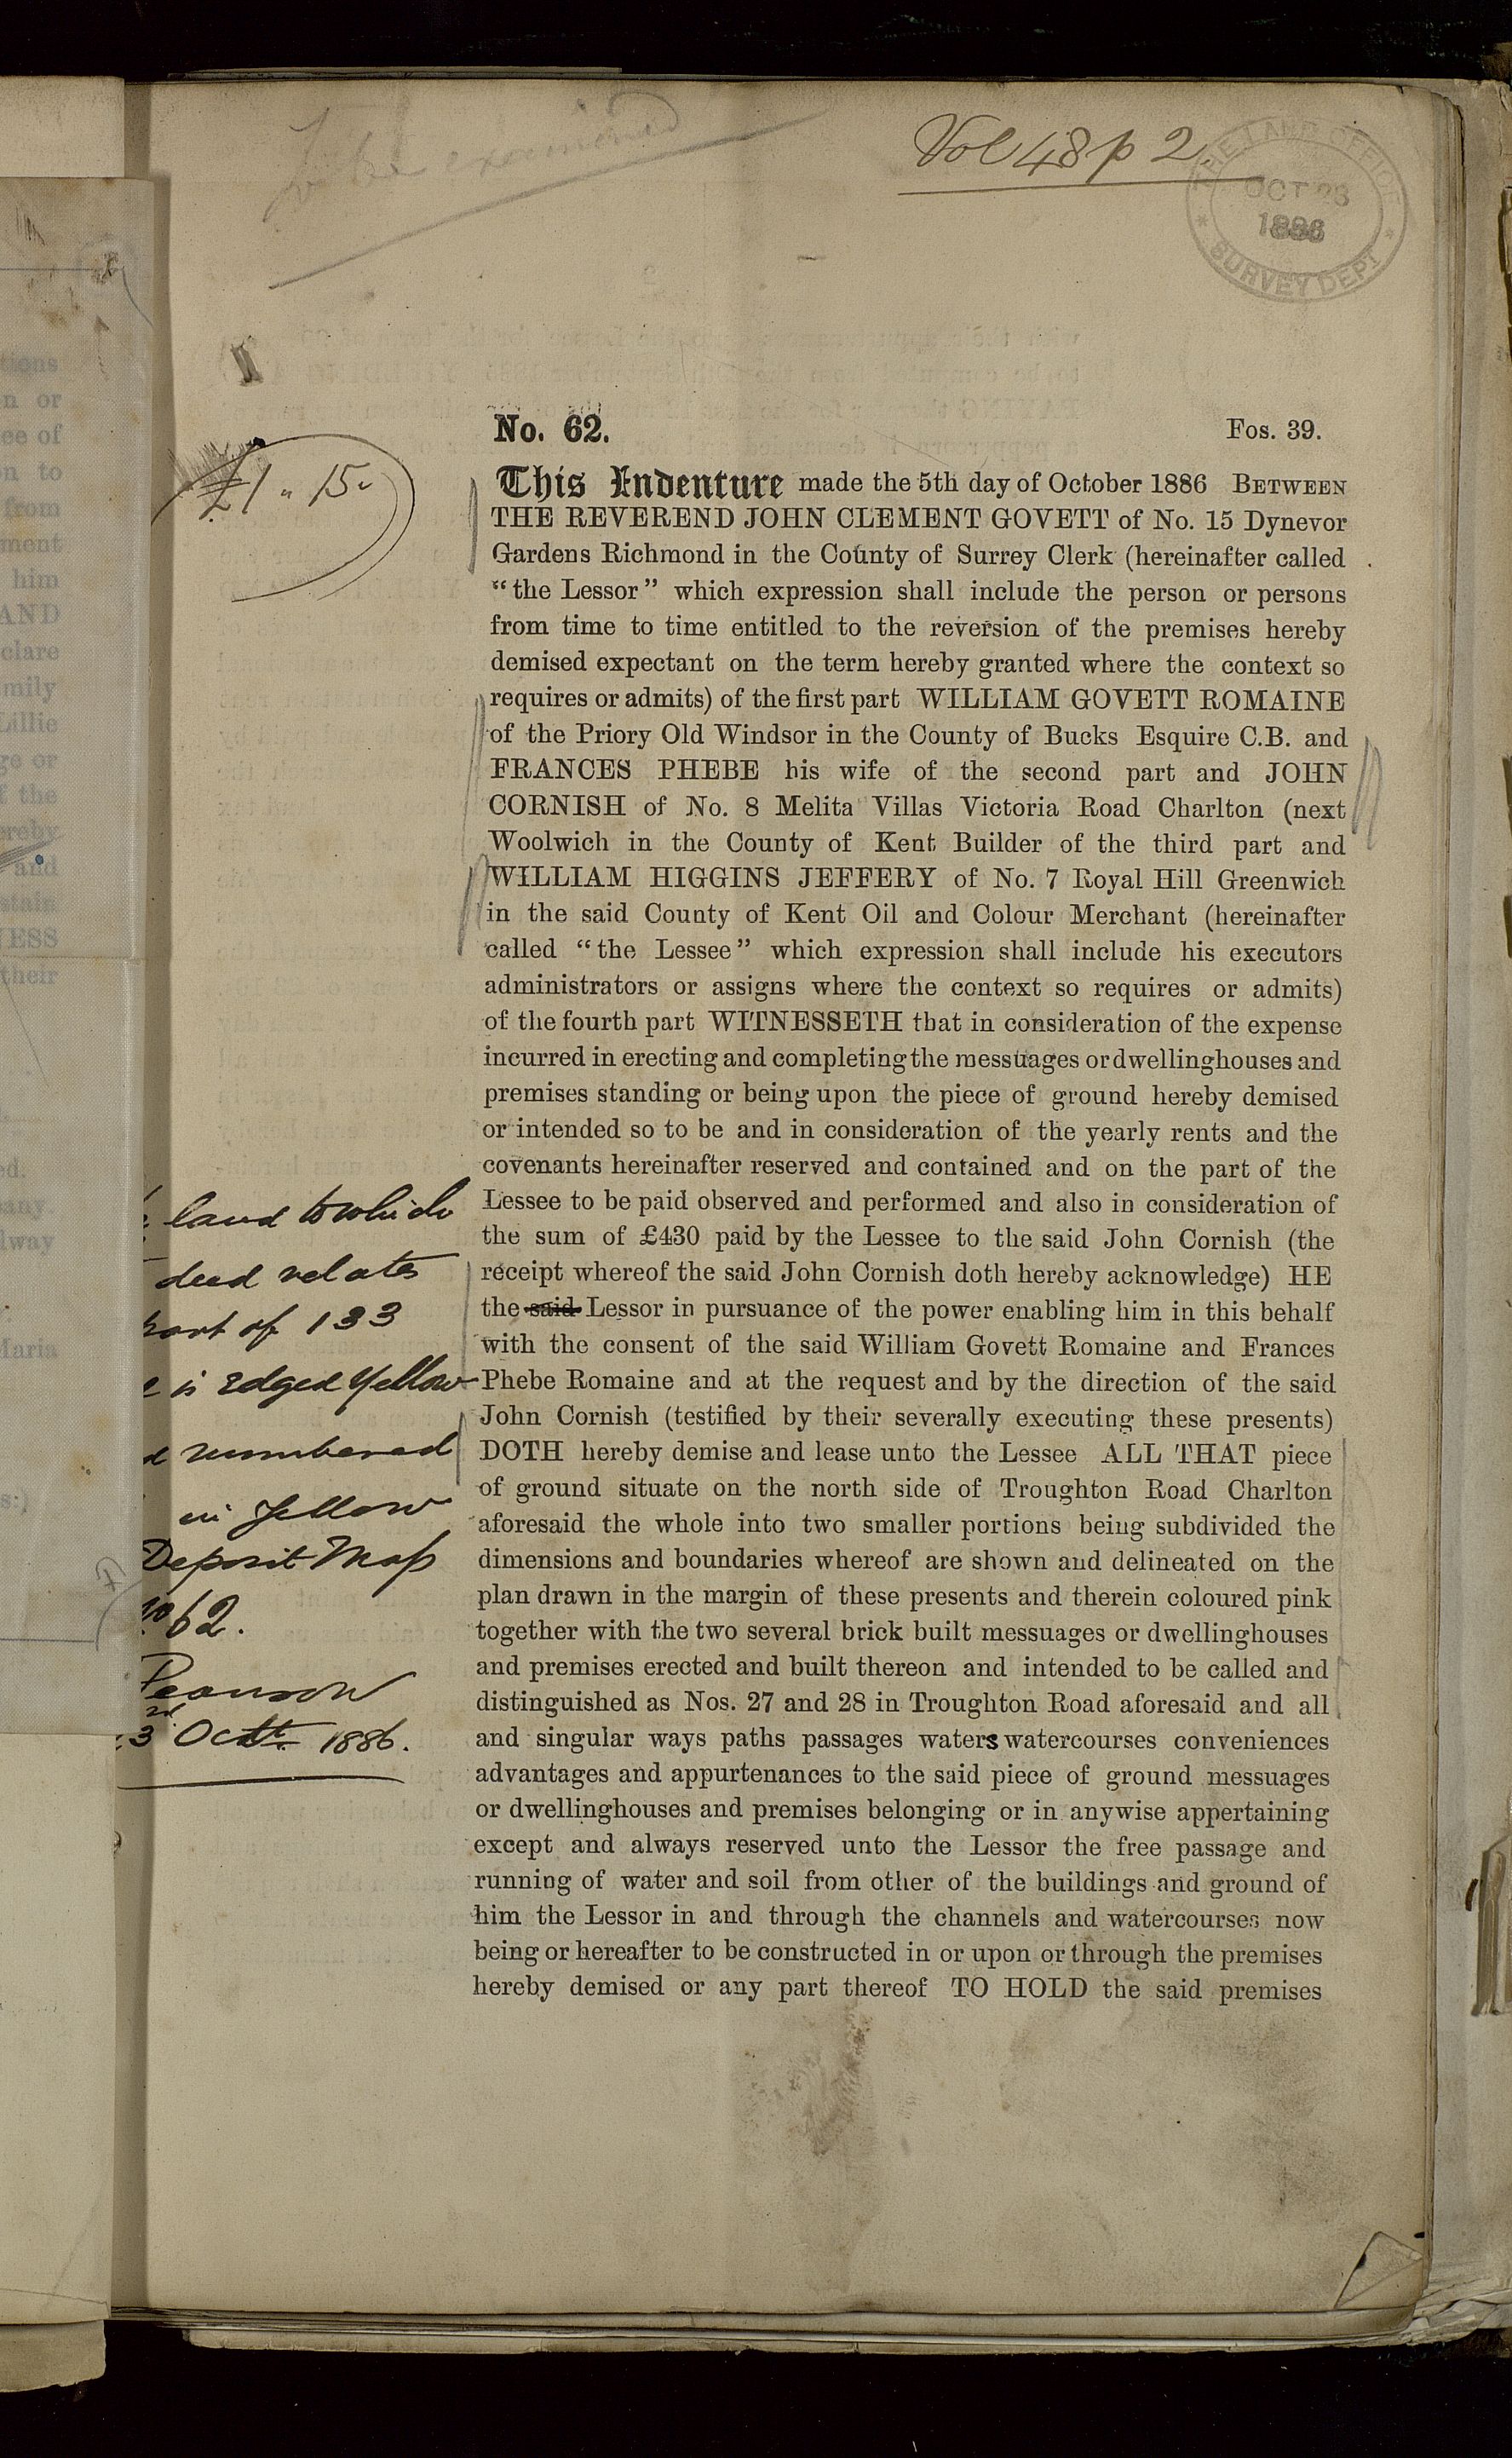 To be examined
Vol 48 p 2
THE LAND OFFICE
OCT 23
1886
* SURVEY DEPT *
No. 62.
Fos. 39.
£1 " 15 "
This Indenture made the 5th day of October 1886 BETWEEN
THE REVEREND JOHN CLEMENT GOVETT of No. 15 Dynevor
Gardens Richmond in the County of Surrey Clerk (hereinafter called
"the Lessor" which expression shall include the person or persons
from time to time entitled to the reversion of the premises hereby
demised expectant on the term hereby granted where the context so
requires or admits) of the first part WILLIAM GOVETT ROMAINE
of the Priory Old Windsor in the County of Bucks Esquire C.B. and
FRANCES PHEBE his wife of the second part and JOHN
CORNISH of No. 8 Melita Villas Victoria Road Charlton (next
Woolwich in the County of Kent Builder of the third part and
WILLIAM HIGGINS JEFFERY of No. 7 Royal Hill Greenwich
in the said County of Kent Oil and Colour Merchant (hereinafter
called "the Lessee" which expression shall include his executors
administrators or assigns where the context so requires or admits)
of the fourth part WITNESSETH that in consideration of the expense
incurred in erecting and completing the messuages or dwellinghouses and
premises standing or being upon the piece of ground hereby demised
or intended so to be and in consideration of the yearly rents and the
covenants hereinafter reserved and contained and on the part of the
Lessee to be paid observed and performed and also in consideration of
the sum of £430 paid by the Lessee to the said John Cornish (the
receipt whereof the said John Cornish doth hereby acknowledge) HE
the said Lessor in pursuance of the power enabling him in this behalf
with the consent of the said William Govett Romaine and Frances
Phebe Romaine and at the request and by the direction of the said
John Cornish (testified by their severally executing these presents)
DOTH hereby demise and lease unto the Lessee ALL THAT piece
of ground situate on the north side of Troughton Road Charlton
aforesaid the whole into two smaller portions being subdivided the
dimensions and boundaries whereof are shown and delineated on the
plan drawn in the margin of these presents and therein coloured pink
together with the two several brick built messuages or dwellinghouses
and premises erected and built thereon and intended to be called and
distinguished as Nos. 27 and 28 in Troughton Road aforesaid and all
and singular ways paths passages waters watercourses conveniences
advantages and appurtenances to the said piece of ground messuages
or dwellinghouses and premises belonging or in anywise appertaining
except and always reserved unto the Lessor the free passage and
running of water and soil from other of the buildings and ground of
him the Lessor in and through the channels and watercourses now
being or hereafter to be constructed in or upon or through the premises
hereby demised or any part thereof TO HOLD the said premises
land to which
deed relates
part of 133
is Edged Yellow
numbered
in Yellow
Deposit Map
No 62.
Pearson
3rd Octr. 1886.
tions
n or
ee of
on to
from
ment
him
AND
clare
mily
Lillie
ge or
f the
ereby
and
stain
ESS
their
ed.
any.
lway
Maria
s:)